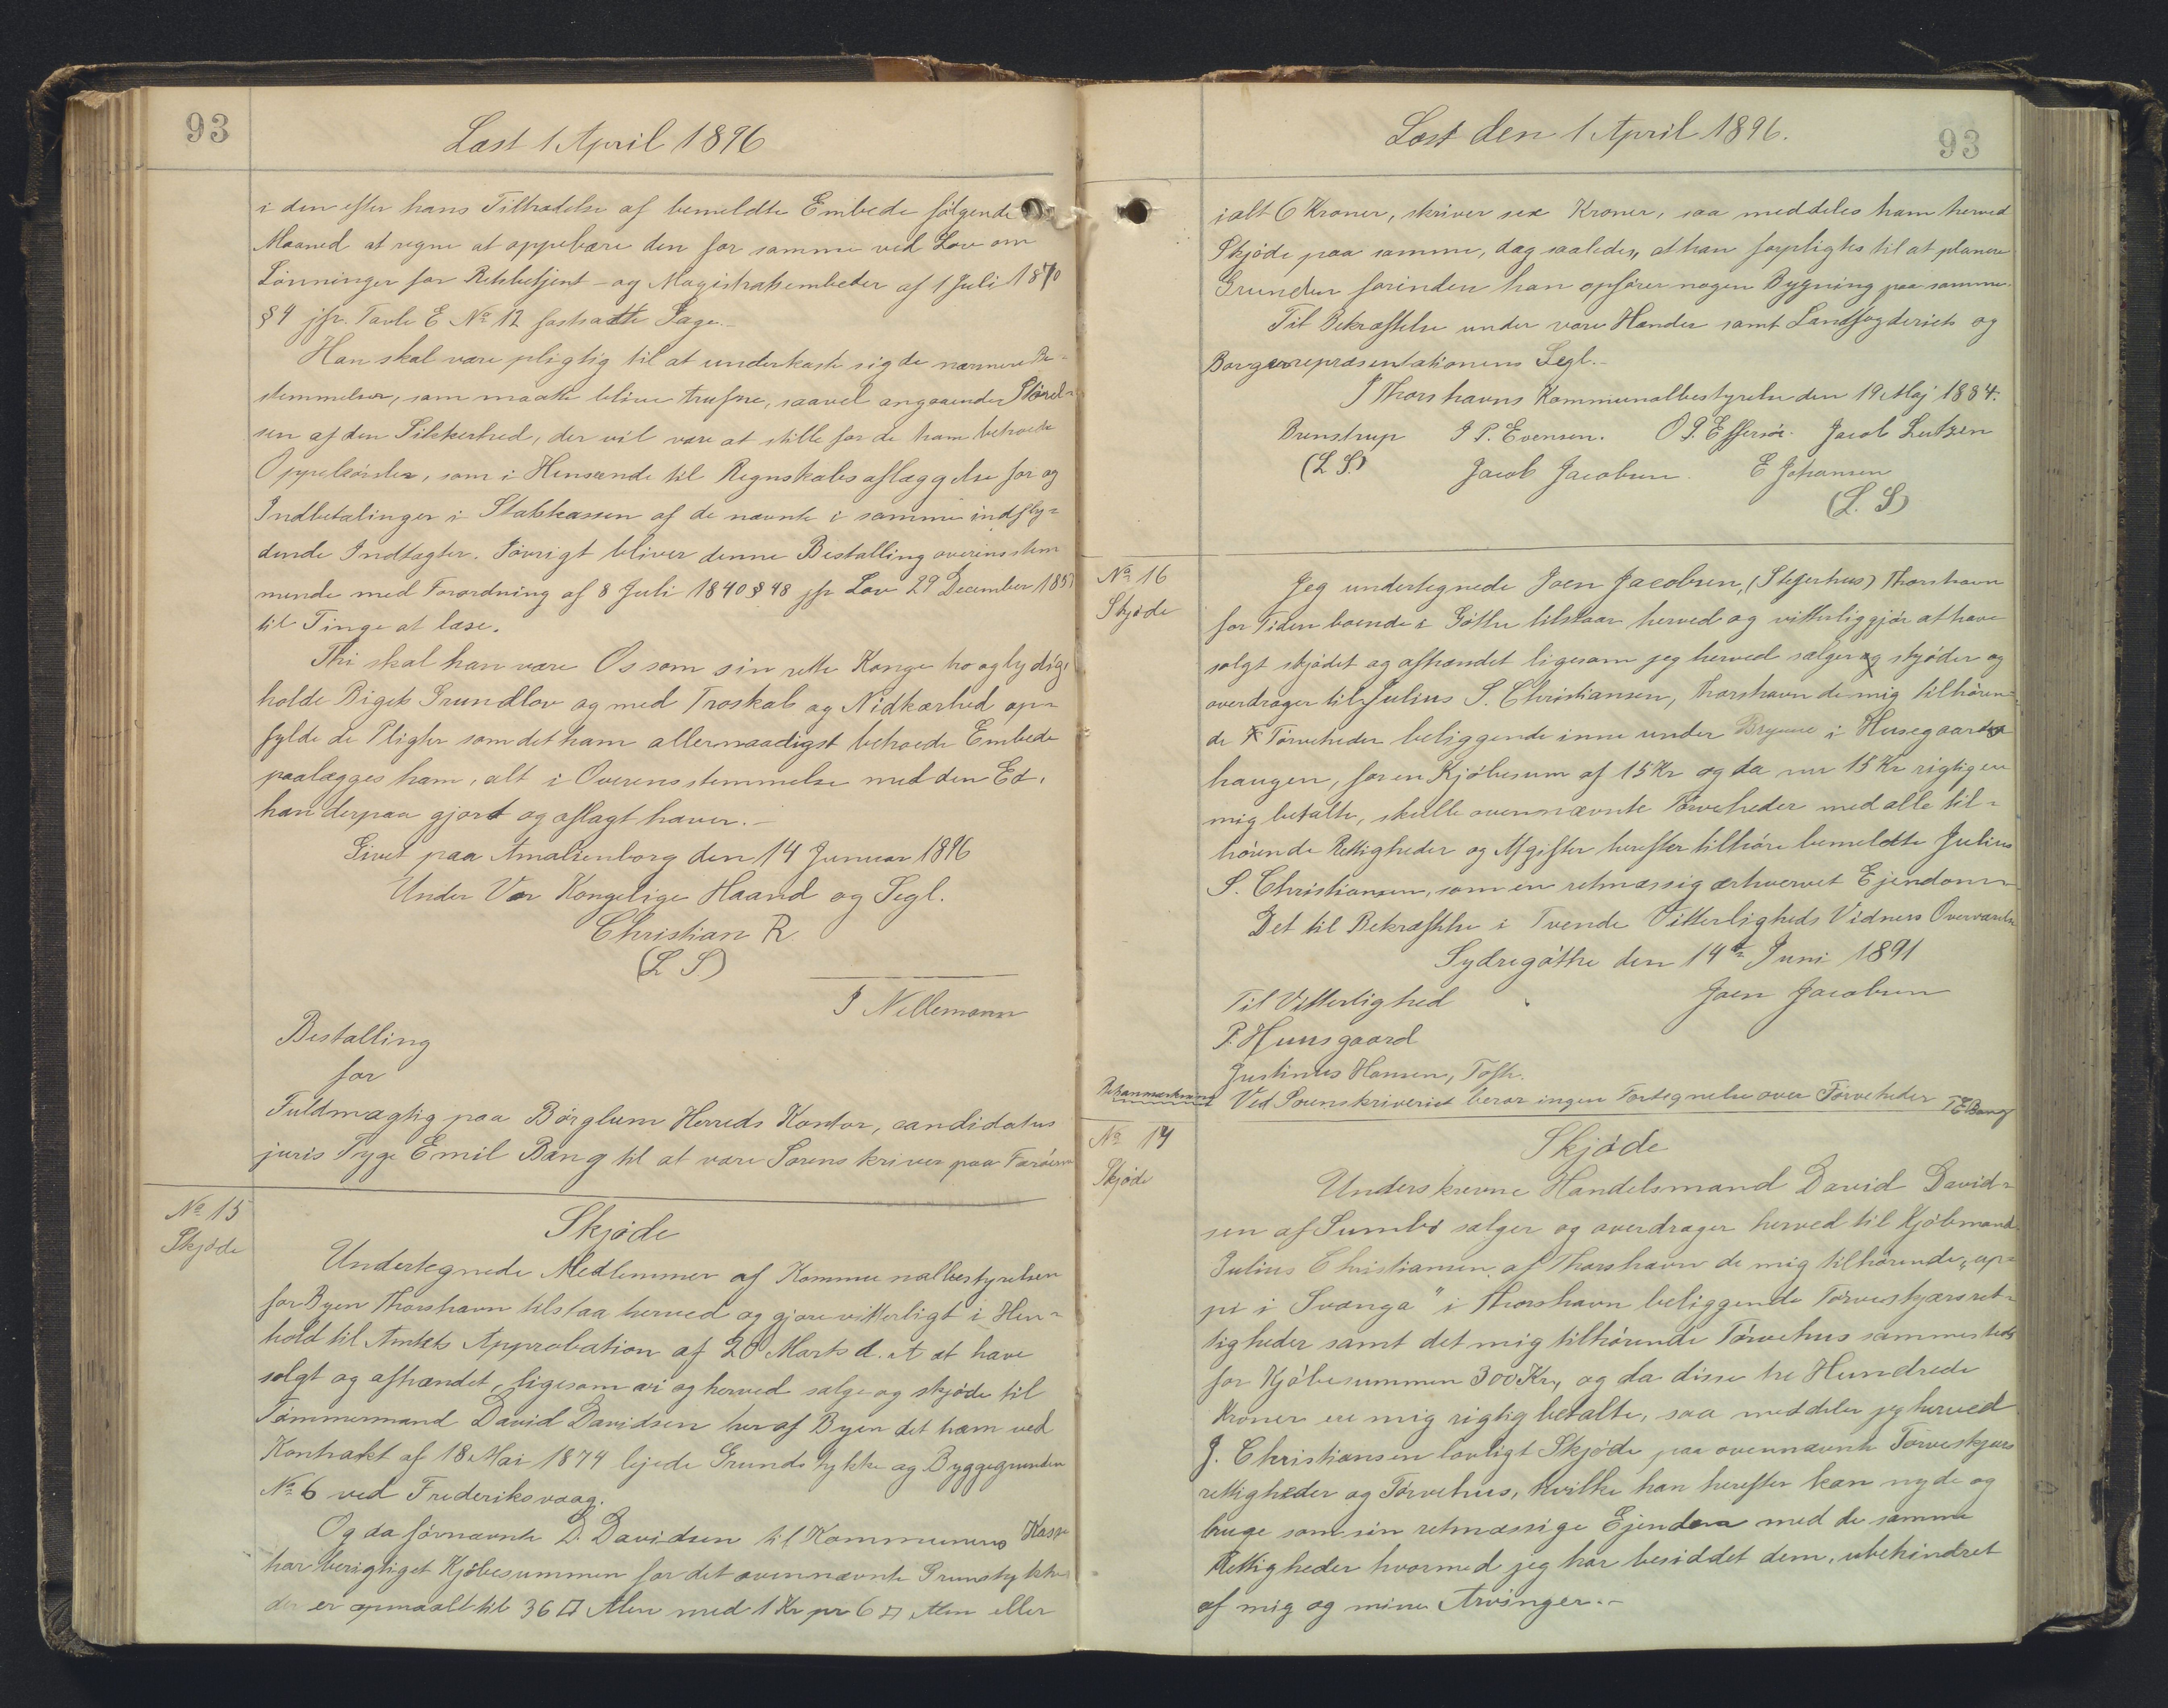 93
Læst 1 April 1896
i den efter hans Tiltrædelse af bemeldte Embede følgende
Maaned at regne at oppebære den for samme ved Lov om
Lønninger for Retsbetjent- og Magistratsembeder af 1 Juli 1870
§ 4 jfr. Tavle E No 12 fastsatte Gage.-
Han skal være pligtig til at underkaste sig de nærmere Be-
stemmelser, som maatte blive trufne, saavel angaaende Størel-
sen af den Sikkerhed, der vil være at stille for de ham betroede
Oppebørsler, som i Henseende til Regnskabsaflæggelse for og
Indbetalinger i Statskassen af de nævnte i samme indfly-
dende Indtægter. Iøvrigt bliver denne Bestalling overensstem
mende med Forordning af 8 Juli 1840 § 48 jfr Lov 29 December 1857
til Tinge at læse.
Thi skal han være Os som sin rette Konge tro og lydig,
holde Rigets Grundlov og med Troskab og Nidkærhed op-
fylde de Pligter som det ham allernaadigst betroede Embede
paalægges ham, alt i Overensstemmelse med den Ed,
han derpaa gjort og aflagt haver.-
Givet paa Amalienborg den 14 Januar 1896
Under Vor Kongelige Haand og Segl.
Christian R
(L S)
J Nellemann
Bestalling
for
Fuldmægtig paa Børglum Herreds Kontor, candidatus
juris Tyge Emil Bang til at være Sorenskriver paa Færøerne
No 15
Skjøde
Skjøde
Undertegnede Medlemmer af Kommunalbestyrelsen
for Byen Thorshavn tilstaa herved og gjøre vitterligt i Hen-
hold til Amtets Approbation af 20 Marts d. A at have
solgt og afhændet, ligesom vi og herved sælge og skjøde til
Tømmermand David Davidsen her af Byen det ham ved
Kontrakt af 18 Mai 1874 lejede Grundstykke og Byggegrunden
No 6 ved Frederiksvaag.
Og da førnævnte D. Davidsen til Kommunens Kasse
har berigtiget Kjøbesummen for det ovennævnte Grunstykke
der er opmaalt til 36 □ Alen med 1 Kr pr 6 □ Alen eller
Læst den 1 April 1896.
93
ialt 6 Kroner, skriver sex Kroner, saa meddeles ham herved
Skjøde paa samme, dog saaledes, at han forpligtes til at planere
Grunden forinden han opfører nogen Bygning paa samme.
Til Bekræftelse under vore Hænder samt Landfogderiets og
Borgerrepræsentationens Segl.-
Thorshavns Kommunalbestyrelse den 19 Maj 1884.
Brenstrup J P. Evensen. O P. Effersøe. Jacob Lutzen
(L S.) Jacob Jacobsen. E Johansen
(L. S)
No 16
Skjøde
Jeg undertegnede Joen Jacobsen, (Stejerhus) Thorshavn
for Tiden boende i Gøthe tilstaar herved og vitterliggjør at have
solgt skjødet og afhændet ligesom jeg herved sælger og skjøder og
overdrager til Julius S. Christiansen, Thorshavn de mig tilhøren-
de Tørveheder beliggende inne under Brynne i Husegaards
haugen, for en Kjøbesum af 15 Kr og da nu 15 Kr rigtig ere
mig betalte, skulle ovennævnte Tørveheder med alle til-
hørende Rettigheder og Afgifter herefter tilhøre bemeldte Julius
S. Christiansen, som en retmæssig erhvervet Ejendom.-
Det til Bekræftelse i Tvende Vitterligheds Vidners Overværelse
Sydregøthe den 14de Juni 1891
Til Vitterlighed Joen Jacobsen
P. Huusgaard
Justinus Hansen, Toft.
Retsanmærkning Ved Sorenskriveriet beror ingen Fortegnelse over Tørveheder TEBang
No 17
Skjøde
Skjøde
Underskrevne Handelsmand David David-
sen af Sumbø sælger og overdrager herved til Kjøbmand
Julius Christiansen af Thorshavn de mig tilhørende, „op-
pe i Svanga" i Thorshavn beliggende Tørveskjærsret-
tigheder samt det mig tilhørende Tørvehus sammesteds
for Kjøbesummen 300 Kr, og da disse tre Hundrede
Kroner ere mig rigtig betalte, saa meddeler jeg herved
J. Christiansen lovligt Skjøde paa ovennævnte Tørveskjærs
rettigheder og Tørvehus, hvilke han herefter kan nyde og
bruge som sin retmæssige Ejendom med de samme
Rettigheder hvormed jeg har besiddet dem, ubehindret
af mig og mine Arvinger.-